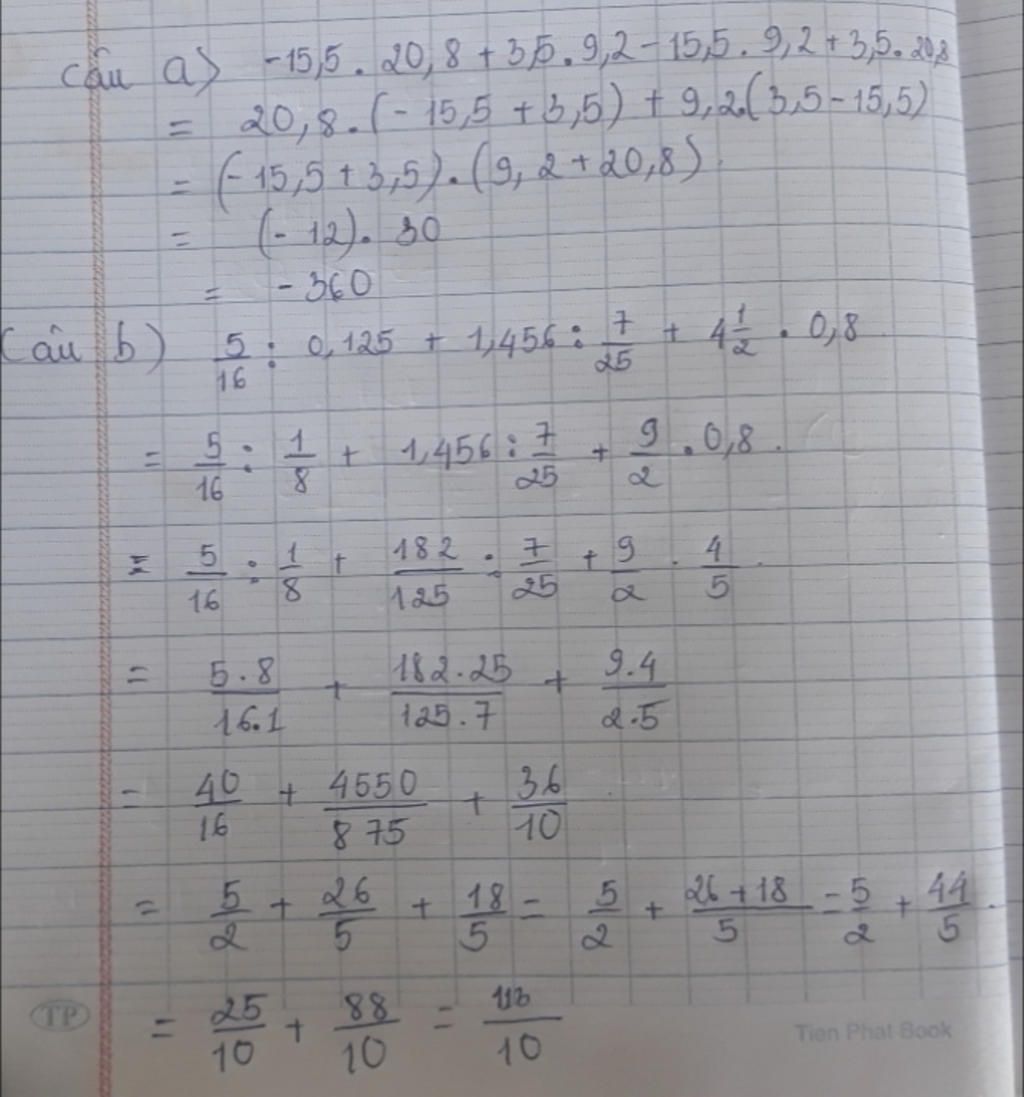 Câu a) -15,5 . 20,8 + 3,5 . 9,2 - 15,5 . 9,2 + 3,5 . 20,8
= 20,8 . (-15,5 + 3,5) + 9,2 . (3,5 - 15,5)
= (-15,5 + 3,5) . (9,2 + 20,8)
= (-12) . 30
= -360
Câu b) 5/16 : 0,125 + 1,456 : 7/25 + 4 1/2 . 0,8
= 5/16 : 1/8 + 1,456 : 7/25 + 9/2 . 0,8
= 5/16 : 1/8 + 182/125 : 7/25 + 9/2 . 4/5
= 5.8/16.1 + 182.25/125.7 + 9.4/2.5
= 40/16 + 4550/875 + 36/10
= 5/2 + 26/5 + 18/5 = 5/2 + 26+18/5 = 5/2 + 44/5
= 25/10 + 88/10 = 113/10
TP
Tien Phat Book